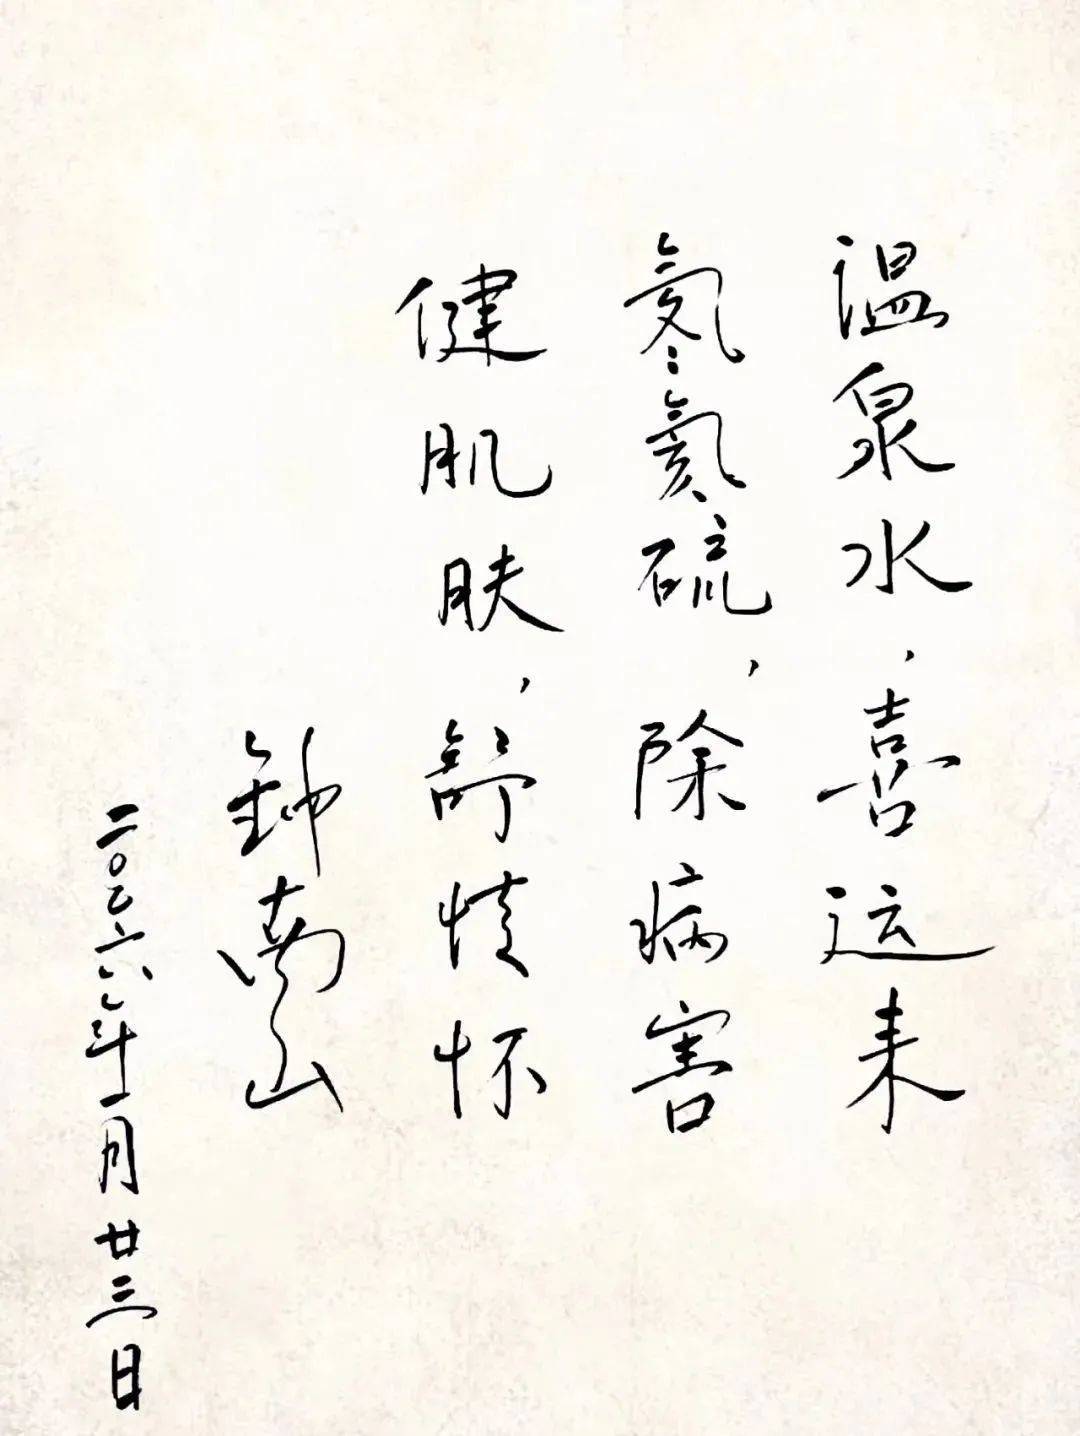 温泉水，喜运来
氡氦硫，除病害
健肌肤，舒情怀
钟南山
二〇二六年一月廿三日